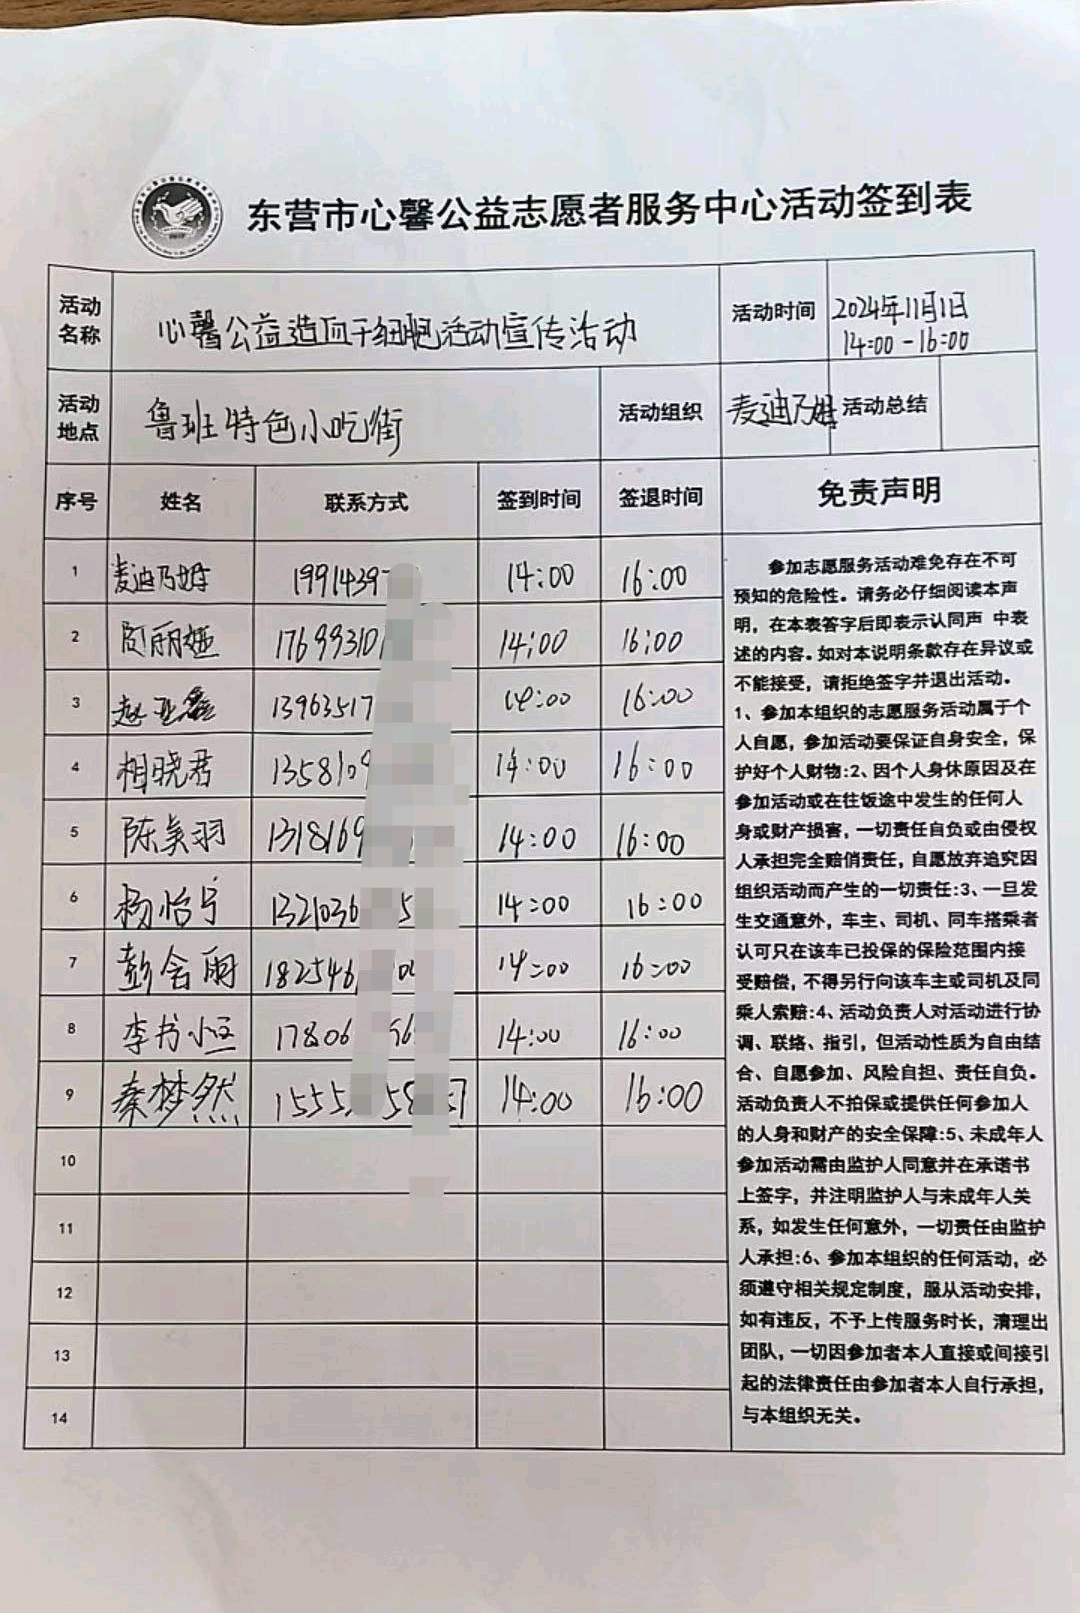 东营市心馨公益志愿者服务中心活动签到表
活动名称 心馨公益造血干细胞活动宣传活动 活动时间 2024年11月1日 14:00-16:00
活动地点 鲁班特色小吃街 活动组织 麦迪乃 活动总结
序号 姓名 联系方式 签到时间 签退时间 免责声明
1 麦迪乃 1991439 14:00 16:00
2 阿丽娅 17699310 14:00 16:00
3 赵亚鑫 13963517 14:00 16:00
4 相晓君 1358109 14:00 16:00
5 陈美羽 1318169 14:00 16:00
6 杨怡宁 1321036 5 14:00 16:00
7 彭含雨 182546 14:00 16:00
8 李书 17806 14:00 16:00
9 秦梦然 1555 58 14:00 16:00
10
11
12
13
14
参加志愿服务活动难免存在不可
预知的危险性。请务必仔细阅读本声
明，在本表答字后即表示认同声 中表
述的内容。如对本说明条款存在异议或
不能接受，请拒绝签字并退出活动。
1、参加本组织的志愿服务活动属于个
人自愿，参加活动要保证自身安全，保
护好个人财物:2、因个人身休原因及在
参加活动或在往饭途中发生的任何人
身或财产损害，一切责任自负或由侵权
人承担完全赔俏责任，自愿放弃追究因
组织活动而产生的一切责任:3、一旦发
生交通意外，车主、司机、同车搭乘者
认可只在该车已投保的保险范围内接
受赔偿，不得另行向该车主或司机及同
乘人索赔:4、活动负责人对活动进行协
调、联络、指引，但活动性质为自由结
合、自愿参加、风险自担、责任自负。
活动负责人不拍保或提供任何参加人
的人身和财产的安全保障:5、未成年人
参加活动需由监护人同意并在承诺书
上签字，并注明监护人与未成年人关
系，如发生任何意外，一切责任由监护
人承担:6、参加本组织的任何活动，必
须遵守相关规定制度，服从活动安排，
如有违反，不予上传服务时长，清理出
团队，一切因参加者本人直接或间接引
起的法律责任由参加者本人自行承担，
与本组织无关。